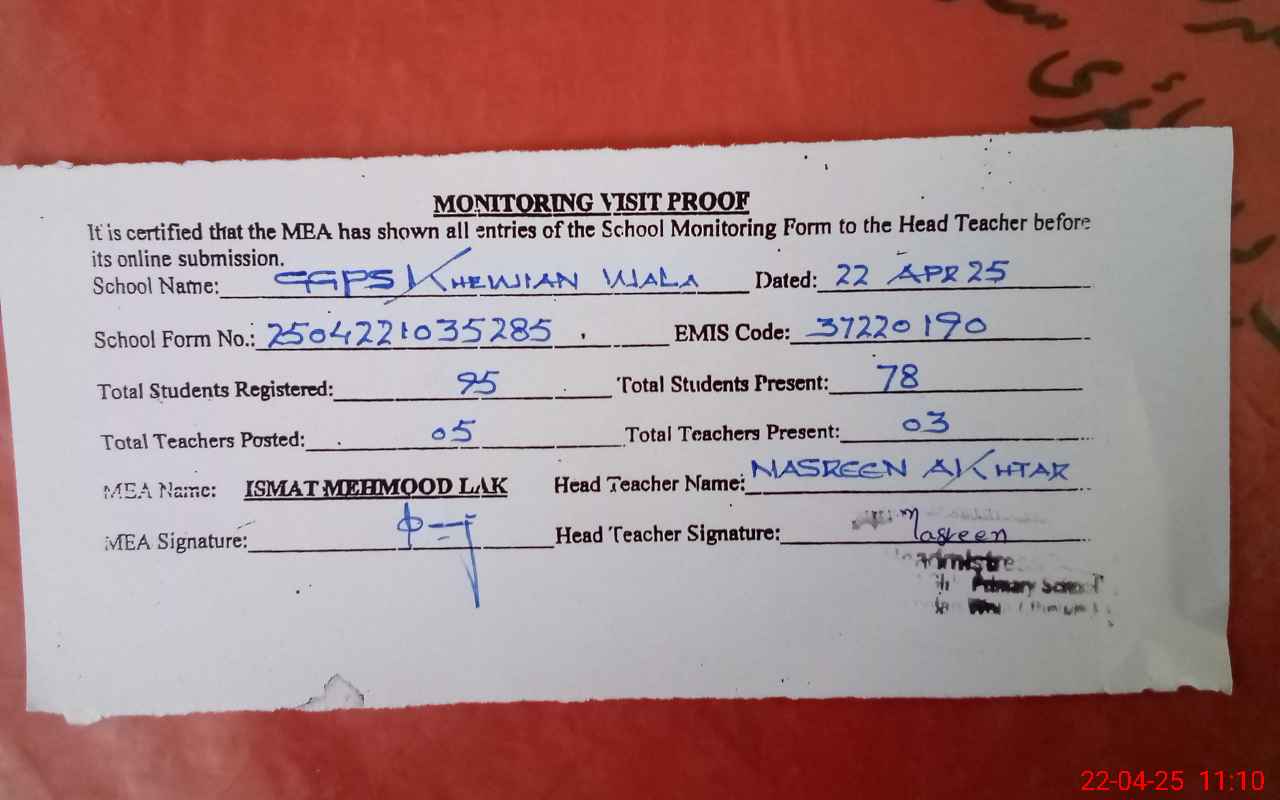 MONITORING VISIT PROOF
It is certified that the MEA has shown all entries of the School Monitoring Form to the Head Teacher before
its online submission.
School Name: GGPS KHEWIAN WALA Dated: 22 APR 25
School Form No.: 2504221035285 EMIS Code: 37220190
Total Students Registered: 95 Total Students Present: 78
Total Teachers Posted: 05 Total Teachers Present: 03
MEA Name: ISMAT MEHMOOD LAK Head Teacher Name: NASREEN AKHTAR
MEA Signature: Head Teacher Signature: Nasreen
Primary School
22-04-25 11:10